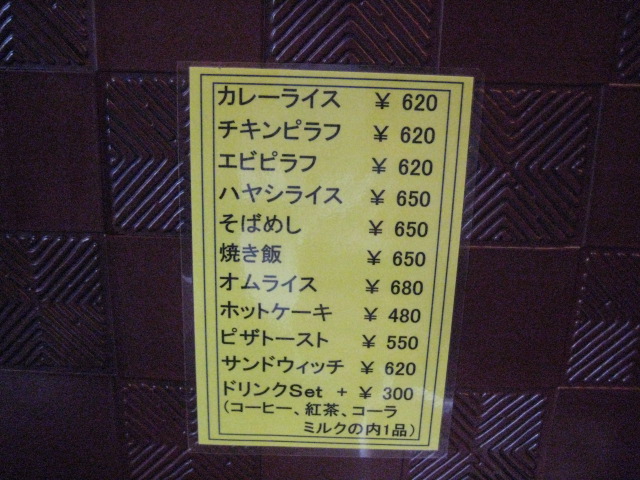 カレーライス ¥ 620
チキンピラフ ¥ 620
エビピラフ ¥ 620
ハヤシライス ¥ 650
そばめし ¥ 650
焼き飯 ¥ 650
オムライス ¥ 680
ホットケーキ ¥ 480
ピザトースト ¥ 550
サンドウィッチ ¥ 620
ドリンクSet + ¥ 300
(コーヒー、紅茶、コーラ
ミルクの内1品)